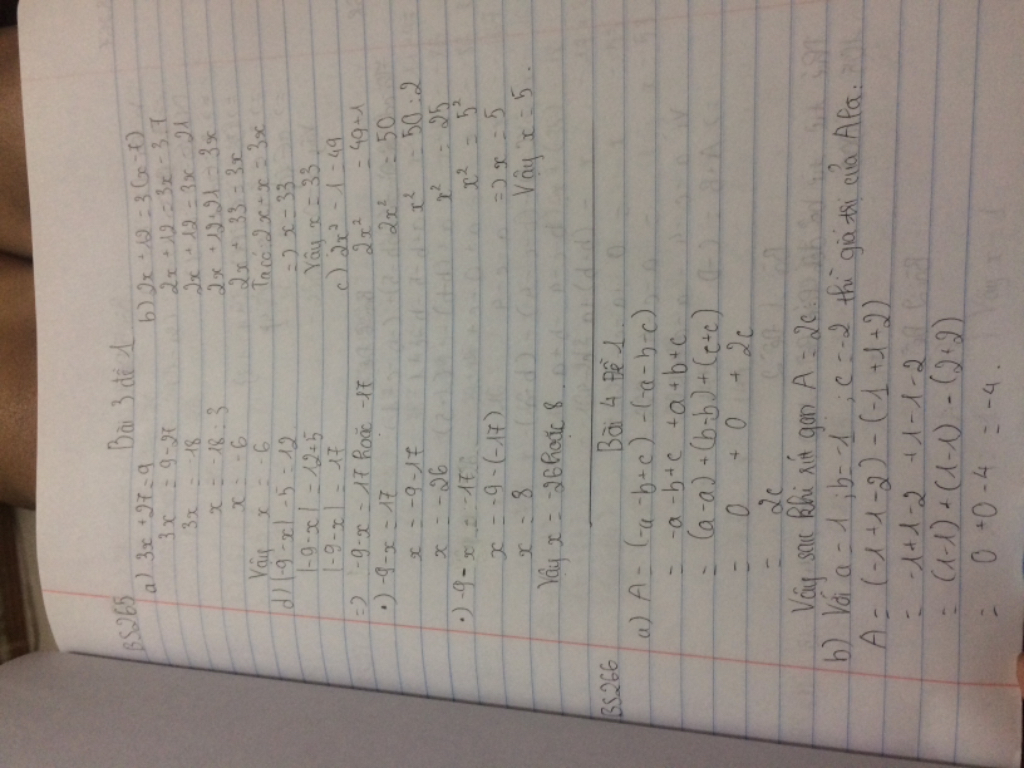 BS265
Bài 3 đề 1
a) 3x + 27 = 9
3x = 9 - 27
3x = -18
x = -18 : 3
x = -6
Vậy x = -6
d) |-9-x| - 5 = 12
|-9-x| = 12+5
|-9-x| = 17
=) -9-x = 17 hoặc -17
•) -9-x = 17
x = -9-17
x = -26
•) -9-x = -17
x = -9-(-17)
x = 8
Vậy x = -26 hoặc 8.
b) 2x + 12 = 3(x-7)
2x + 12 = 3x - 3.7
2x + 12 = 3x - 21
2x + 12+21 = 3x
2x + 33 = 3x
Ta có 2x + x = 3x
=) x = 33
Vậy x = 33
c) 2x² - 1 = 49
2x² = 49+1
2x² = 50
x² = 50 : 2
x² = 25
x² = 5²
=) x = 5
Vậy x = 5.
BS266
Bài 4 Đề 1.
a) A = (-a-b+c) - (-a-b-c)
= -a-b+c +a+b+c
= (a-a) + (b-b) + (c+c)
= 0 + 0 + 2c
= 2c
Vậy sau khi rút gọn A = 2c.
b) Với a = 1 ; b = -1 ; c = -2 thì giá trị của A là:
A = (-1+1-2) - (-1+1+2)
= -1+1-2 +1-1-2
= (1-1) + (1-1) - (2+2)
= 0 + 0 - 4 = -4.